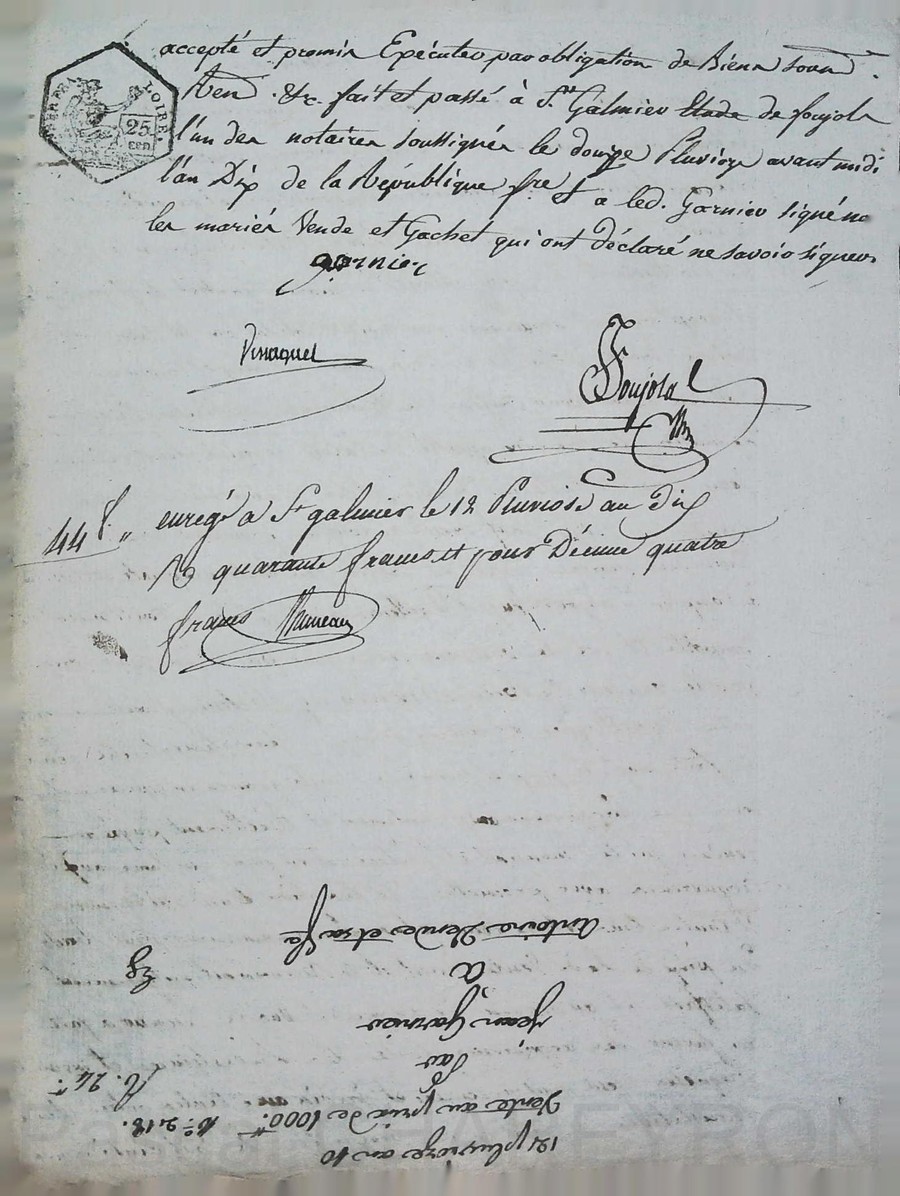 accepté et promis Exécuter par obligation de Biens soumd.
Ren. &c. fait et passé à St. Galmier Etude de foujols
l'un des notaires soussignés le douze Pluviose avant midi
l'an Dix de la République fre. et a led. Garnier signé ne
les mariés Vende et Gachet qui ont déclaré ne savoir signer
garnier
LOIRE.
25
cen.
Foujols
44 f. „ enregé a St galmier le 12 Pluviose an Dix
R quarante francs et pour Décime quatre
francs
12 pluvioze an 10
Vente au prix de 1000.tt
No. 218.
R. 24.
Par
jean Garnier
a
Antoine Vende et sa fe